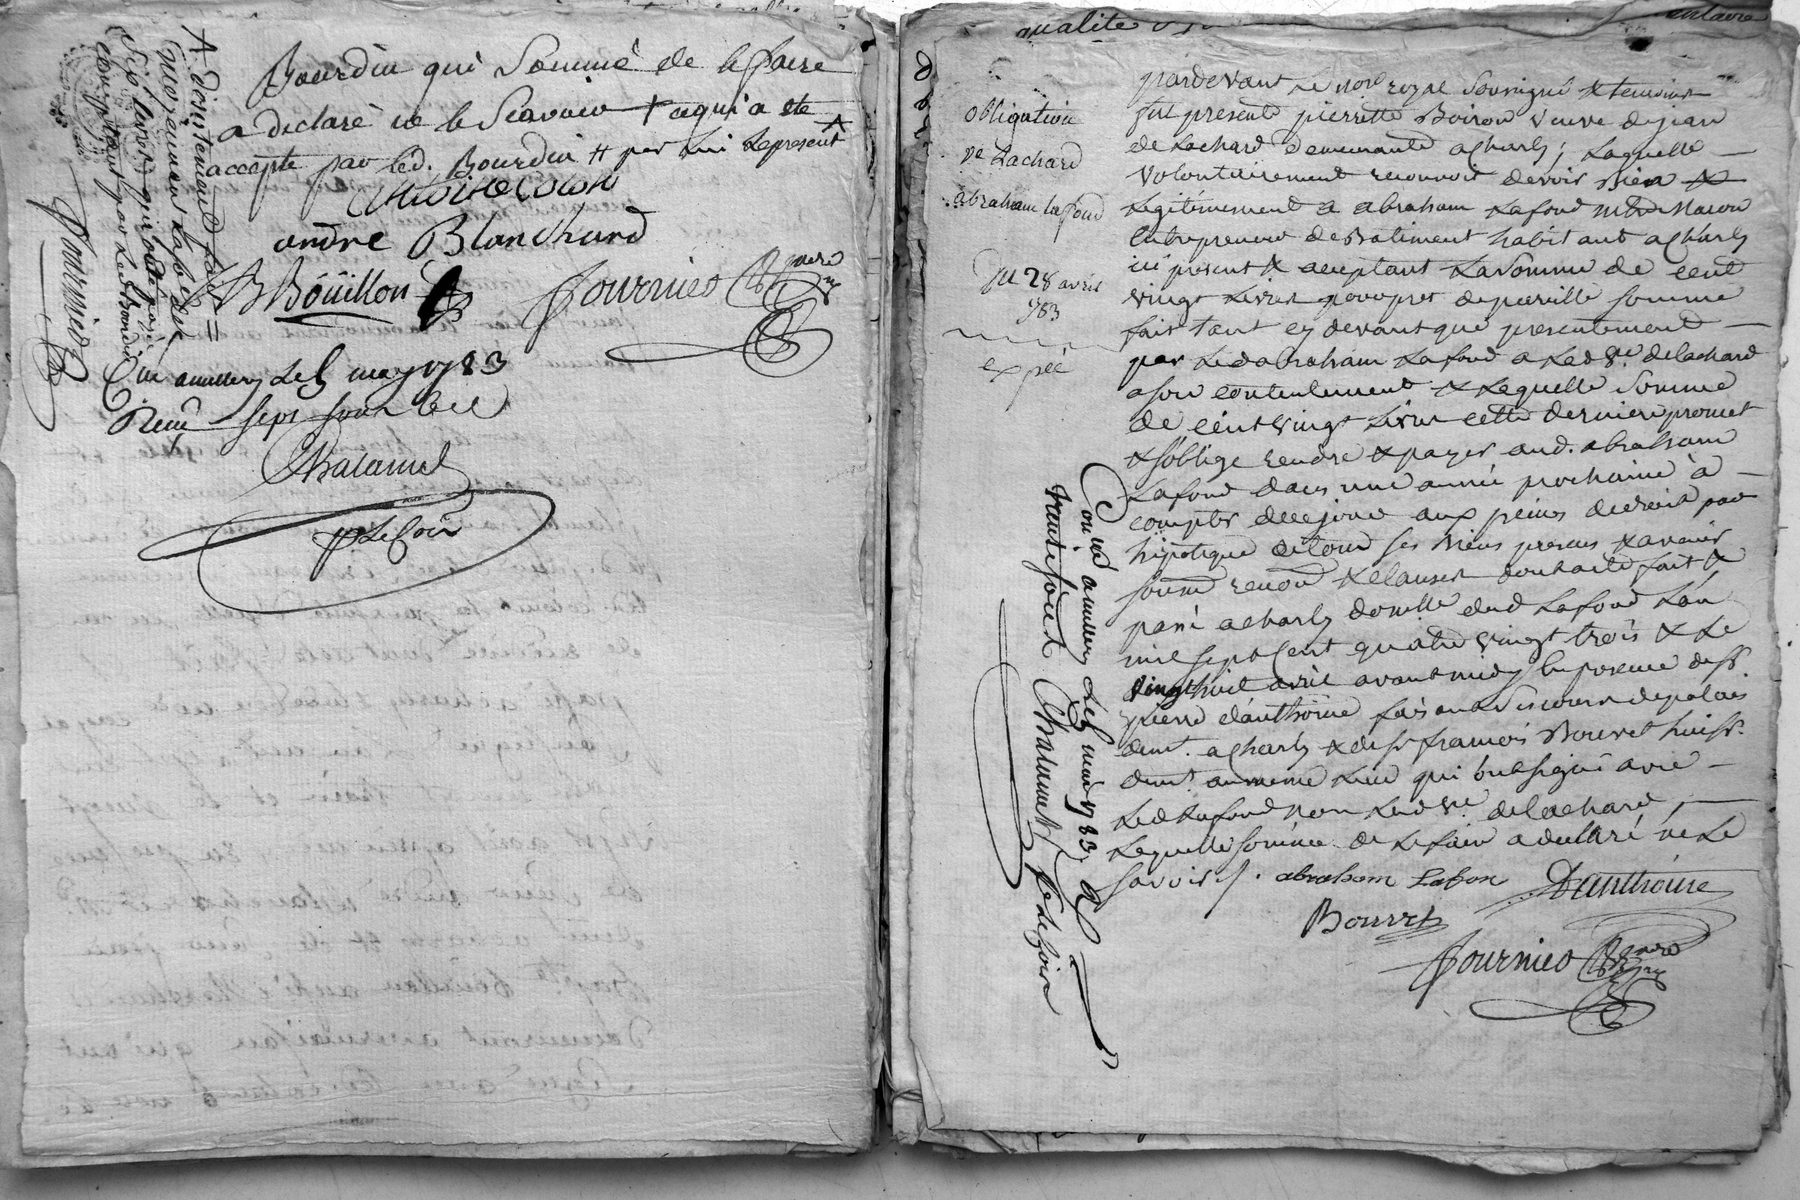 Bourdin qui Sommé de le faire
a declaré ne le Scavoir + ce qui a ete
accepté par led. Bourdin # par lui Represent
Antoine Colon
andre Blanchard
B Boüillon
fournier
Con. a millery Le 5 may 1783
Reçu sept sous six d
Chalamel
p Le Coir
A doistenant fait =
six livres
comptant par Led. Bourdin
fournier
qualité
obligation
ve Lachard
abraham lafond
Du 28 avril
1783
expéé
pardevant Le no.re royal Soussigné & temoins
fut presente pierrette Boiron veuve de jean
de Lachard demeurante a Charly ; Laquelle
volontairement reconnoit devoir bien &
Legitimement a abraham Lafond m.e Masson
Entrepreneur de Batiment habitant a Charly
ici present & acceptant La somme de cent
vingt Livres pour pret de pareille somme
fait tant cy devant que presentement
par Led abraham Lafond a Lad ve. de lachard
a son contentement & Laquelle somme
de cent vingt Livres cette derniere promet
& s'oblige rendre & payer aud. abraham
Lafond dans une année prochaine à
compter de ce jour aux peines de droit par
hipoteque de tous ses biens presens & avenir
soum renon & clauses dont acte fait &
passé a Charly domille dud Lafond L'an
mil sept Cent quatre vingt trois & Le
vingt huit avril avant midy En presence de s.r
pierre danthoine faisant
demt. a Charly & de sr francois Bouvet huiss.r
demt. au meme Lieu qui ont signé avec
Led Lafond non Lad ve. de Lachard,
Laquelle sommée de Le faire a declaré ne Le
savoir /. abraham Lafon Danthoine
Bouvet
fournier
Con. a millery Le 5 may 1783 R
trente sous Chalamel p Le Coir